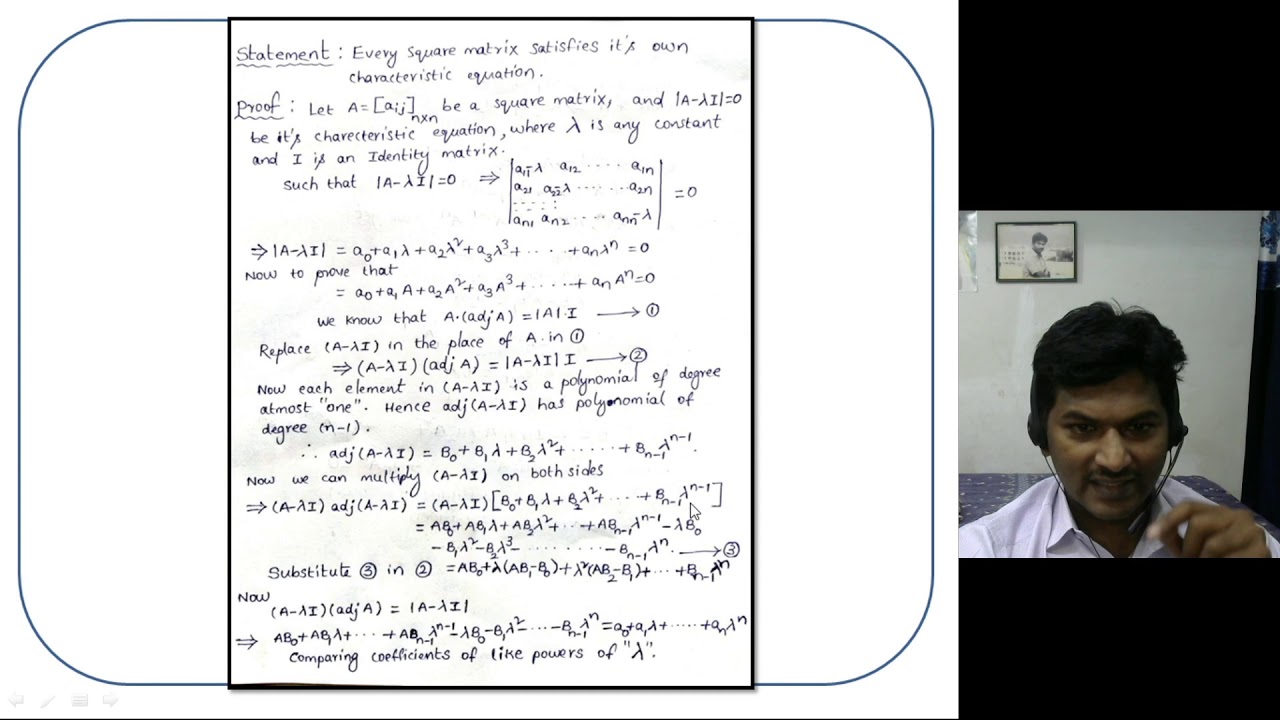 Statement : Every square matrix satisfies it's own
characteristic equation.
Proof : Let A = [aij]n×n be a square matrix, and |A-λI|=0
be it's charecteristic equation, where λ is any constant
and I is an Identity matrix.
such that |A-λI|=0 ⇒ |a11-λ a12 ..... a1n|
|a21 a22-λ ...... a2n| = 0
|- - - - : :|
|an1 an2 .... ann-λ|
⇒ |A-λI| = a0+a1λ+a2λ²+a3λ³+ ..... +anλⁿ = 0
Now to prove that
= a0+a1A+a2A²+a3A³+ ..... + anAⁿ=0
we know that A.(adj A) = |A|.I ⟶ ①
Replace (A-λI) in the place of A. in ①
⇒ (A-λI) (adj A) = |A-λI| I ⟶ ②
Now each element in (A-λI) is a polynomial of degree
atmost "one". Hence adj(A-λI) has polynomial of
degree (n-1).
∴ adj(A-λI) = B0+B1λ+B2λ²+ ...... + Bn-1λⁿ⁻¹.
Now we can multiply (A-λI) on both sides
⇒ (A-λI) adj(A-λI) = (A-λI)[B0+B1λ+B2λ²+ .... + Bn-1λⁿ⁻¹]
= AB0+AB1λ+AB2λ²+ ... +ABn-1λⁿ⁻¹ - λB0
- B1λ²-B2λ³- ......... - Bn-1λⁿ. ⟶ ③
Substitute ③ in ② = AB0+λ(AB1-B0)+λ²(AB2-B1)+ ... +Bn-1λⁿ
Now
(A-λI)(adj A) = |A-λI|
⇒ AB0+AB1λ+ ... + ABn-1λⁿ⁻¹-λB0-B1λ²- ... -Bn-1λⁿ = a0+a1λ+ ..... +anλⁿ
Comparing coefficients of like powers of "λ".